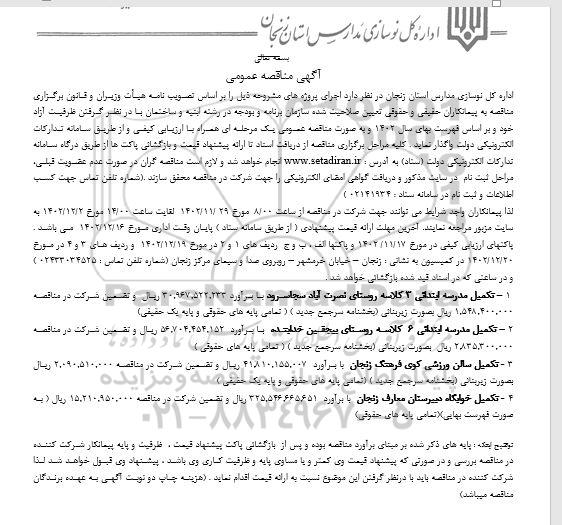 اداره کل نوسازی مدارس استان زنجان
بسمه تعالی
آگهی مناقصه عمومی
اداره کل نوسازی مدارس استان زنجان در نظر دارد اجرای پروژه های مشروحه ذیل را بر اساس تصویب نامه هیـأت وزیـران و قـانون برگـزاری
مناقصه به پیمانکاران حقیقی و حقوقی تعیین صلاحیت شده سازمان برنامه و بودجه در رشته ابنیه و ساختمان بـا در نظـر گـرفتن ظرفیـت آزاد
خود و بر اساس فهرست بهای سال ۱۴۰۲ و به صورت مناقصه عمـومی یـک مرحلـه ای همـراه بـا ارزیـابی کیفـی و از طریـق سـامانه تـدارکات
الکترونیکی دولت واگذار نماید . کلیه مراحل برگزاری مناقصه از دریافت اسناد تا ارائه پیشنهاد قیمت و بازگشائی پاکت ها از طریق درگاه سـامانه
تدارکات الکترونیکی دولت (ستاد) به آدرس : www.setadiran.ir انجام خواهد شد و لازم است مناقصه گران در صورت عدم عضـویت قبلـی،
مراحل ثبت نام در سایت مذکور و دریافت گواهی امضای الکترونیکی را جهت شرکت در مناقصه محقق سازند .(شماره تلفن تماس جهت کسـب
اطلاعات و ثبت نام در سامانه ستاد : ۰۲۱۴۱۹۳۴ )
لذا پیمانکاران واجد شرایط می توانند جهت شرکت در مناقصه از ساعت ۸/۰۰ مورخ ۲۹ /۱۴۰۲/۱۱ لغایت ساعت ۱۴/۰۰ مورخ ۱۴۰۲/۱۲/۲ به
سایت مزبور مراجعه نمایند. آخرین مهلت ارائه قیمت پیشنهادی ( از طریق سامانه ستاد ) پایـان وقـت اداری مـورخ ۱۴۰۲/۱۲/۱۶ مـی باشـد .
پاکتهای ارزیابی کیفی در مورخ ۱۴۰۲/۱۱/۱۷ و پاکتها الف ، ب و ج ردیف های ۱ و ۲ در مورخ ۱۴۰۲/۱۲/۱۹ و ردیـف هـای ۳ و ۴ در مـورخ
۱۴۰۲/۱۲/۲۰ در کمیسیون به نشانی : زنجان – خیابان خرمشهر – روبروی صدا و سیمای مرکز زنجان (شماره تلفن تماس : ۰۲۴۳۳۰۳۴۵۲۵ )
و در ساعتی که در اسناد قید شده بازگشائی خواهد شد .
۱ – تکمیل مدرسه ابتدائی ۳ کلاسه روستای نصرت آباد سجاسـرود بـا بـرآورد ۳۰,۹۶۷,۵۲۲,۲۳۳ ریـال و تضمـین شـرکت در مناقصـه
۱,۵۴۸,۴۰۰,۰۰۰ ریال بصورت زیربنائی (بخشنامه سرجمع جدید ) ( تمامی پایه های حقوقی و پایه یک حقیقی)
۲ – تکمیل مدرسه ابتدائی ۶ کلاسـه روسـتای بیجقـین خدابنـده بـا بـرآورد ۵۶,۷۰۴,۴۵۴,۱۵۲ ریـال و تضـمین شـرکت در مناقصـه
۲,۸۳۵,۳۰۰,۰۰۰ ریال بصورت زیربنائی (بخشنامه سرجمع جدید ) ( تمامی پایه های حقوقی )
۳ – تکمیل سالن ورزشی کوی فرهنگ زنجان با برآورد ۴۱,۸۱۰,۱۵۵,۰۰۷ ریـال و تضمـین شـرکت در مناقصـه ۲,۰۹۰,۵۱۰,۰۰۰ ریـال
بصورت زیربنائی (بخشنامه سرجمع جدید ) (تمامی پایه های حقوقی و پایه یک حقیقی )
۴ – تکمیل خوابگاه دبیرستان معارف زنجان با برآورد ۳۲۵,۵۴۶,۶۶۵,۶۵۱ ریال و تضمین شرکت در مناقصه ۱۵,۲۱۰,۹۵۰,۰۰۰ ریال ( بـه
صورت فهرست بهایی)(تمامی پایه های حقوقی)
توضیح اینکه : پایه های ذکر شده بر مبنای برآورد مناقصه بوده و پس از بازگشائی پاکت پیشنهاد قیمت ، ظرفیت و پایه پیمانکار شـرکت کننـده
در مناقصه بررسی و در صورتی که پیشنهاد قیمت وی کمتر و یا مساوی پایه و ظرفیت کـاری وی باشـد ، پیشـنهاد وی قبـول خواهـد شـد لـذا
شرکت کننده در مناقصه باید با درنظر گرفتن این موضوع نسبت به ارائه قیمت اقدام نماید . (هزینـه چـاپ دو نوبـت آگهـی بـه عهـده برنـدگان
مناقصه میباشد)
۰۲۱-۸۸۳۴۹۶۷۰-۵